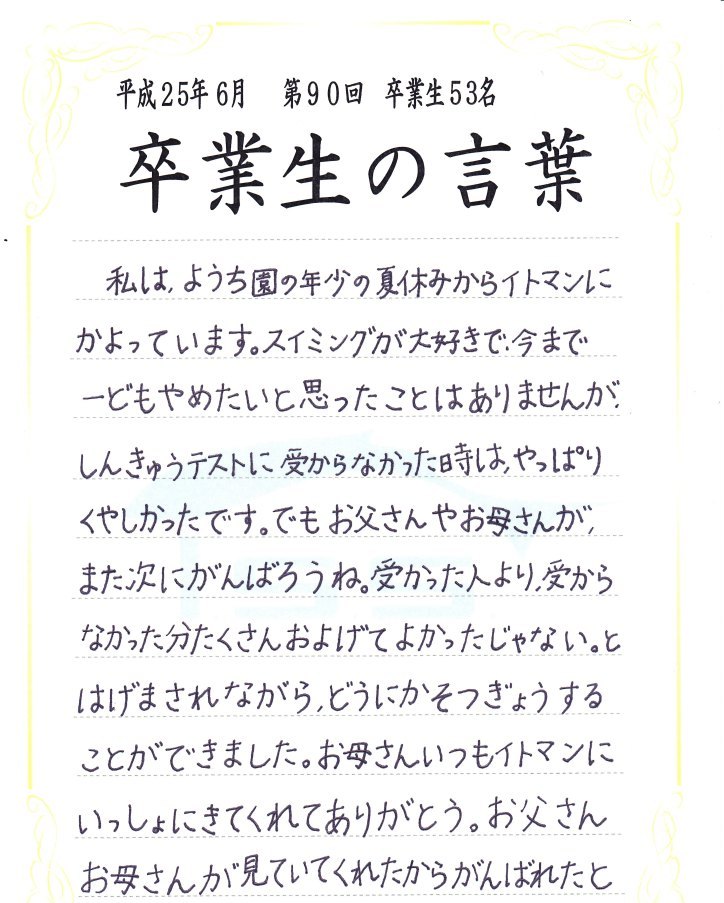 平成25年6月　第90回　卒業生53名
卒業生の言葉
私は,ようち園の年少の夏休みからイトマンに
かよっています。スイミングが大好きで,今まで
一どもやめたいと思ったことはありませんが,
しんきゅうテストに受からなかった時は,やっぱり
くやしかったです。でもお父さんやお母さんが,
また次にがんばろうね。受かった人より,受から
なかった分たくさんおよげてよかったじゃない。と
はげまされながら,どうにかそつぎょうする
ことができました。お母さんいつもイトマンに
いっしょにきてくれてありがとう。お父さん
お母さんが見ていてくれたからがんばれたと